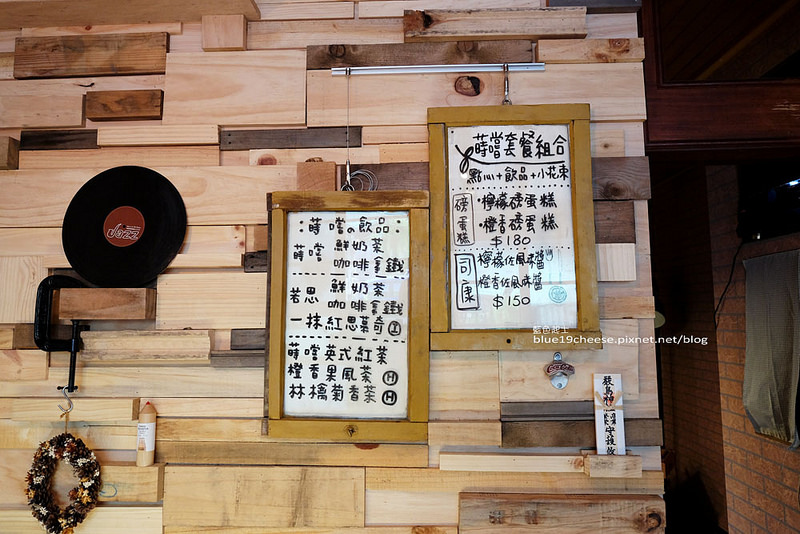 Jazz
:蒔嚐の飲品:
蒔嚐 鮮奶茶
咖啡拿鐵
若思 鮮奶茶
咖啡拿鐵
一抹紅思慕奇
蒔嚐英式紅茶
橙香果風茶 H
林檎菊香茶 H
蒔嚐套餐組合
點心+飲品+小花束
磅蛋糕
·檸檬磅蛋糕
·橙香磅蛋糕
$180
司康
檸檬佐風味醬
橙香佐風味醬
$150
藍色起士
blue19cheese.pixnet.net/blog
Coca-Cola